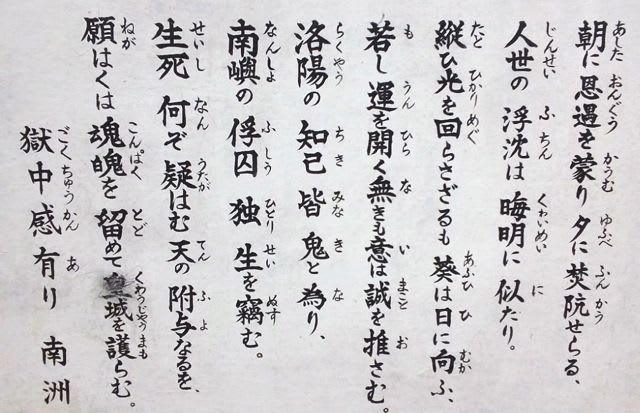 朝に恩遇を蒙り夕に焚阬せらる、
人世の浮沈は晦明に似たり。
縦ひ光を回らさざるも葵は日に向ふ、
若し運を開く無きも意は誠を推さむ。
洛陽の知己皆鬼と為り、
南嶼の俘囚独生を竊む。
生死何ぞ疑はむ天の附与なるを、
願はくは魂魄を留めて皇城を護らむ。
獄中感有り 南洲